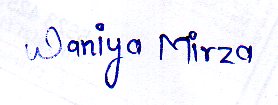 Waniya Mirza